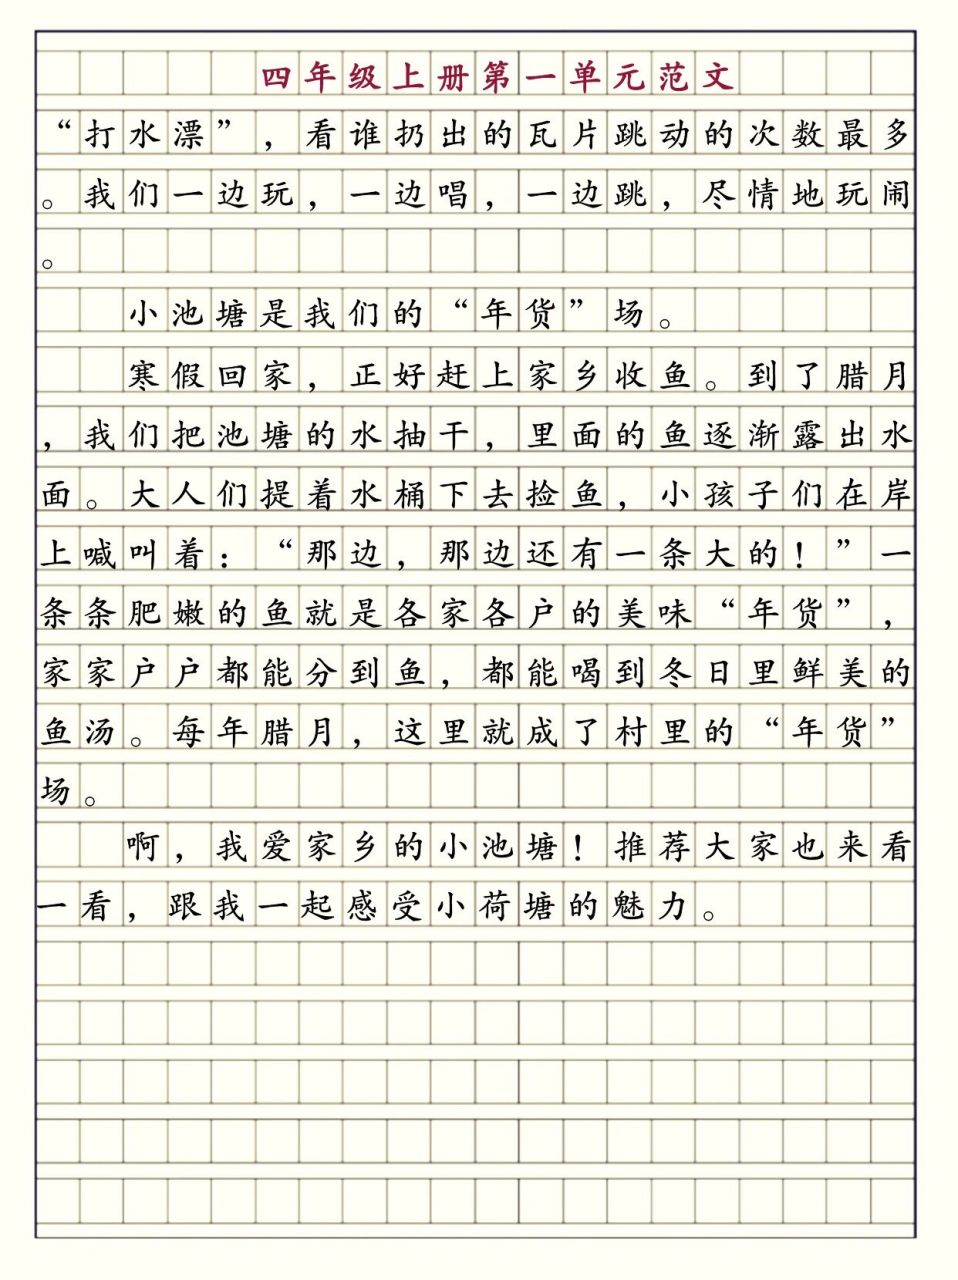 四年级上册第一单元范文
“打水漂”，看谁扔出的瓦片跳动的次数最多
。我们一边玩，一边唱，一边跳，尽情地玩闹
。
小池塘是我们的“年货”场。
寒假回家，正好赶上家乡收鱼。到了腊月
，我们把池塘的水抽干，里面的鱼逐渐露出水
面。大人们提着水桶下去捡鱼，小孩子们在岸
上喊叫着：“那边，那边还有一条大的！”一
条条肥嫩的鱼就是各家各户的美味“年货”，
家家户户都能分到鱼，都能喝到冬日里鲜美的
鱼汤。每年腊月，这里就成了村里的“年货”
场。
啊，我爱家乡的小池塘！推荐大家也来看
一看，跟我一起感受小荷塘的魅力。